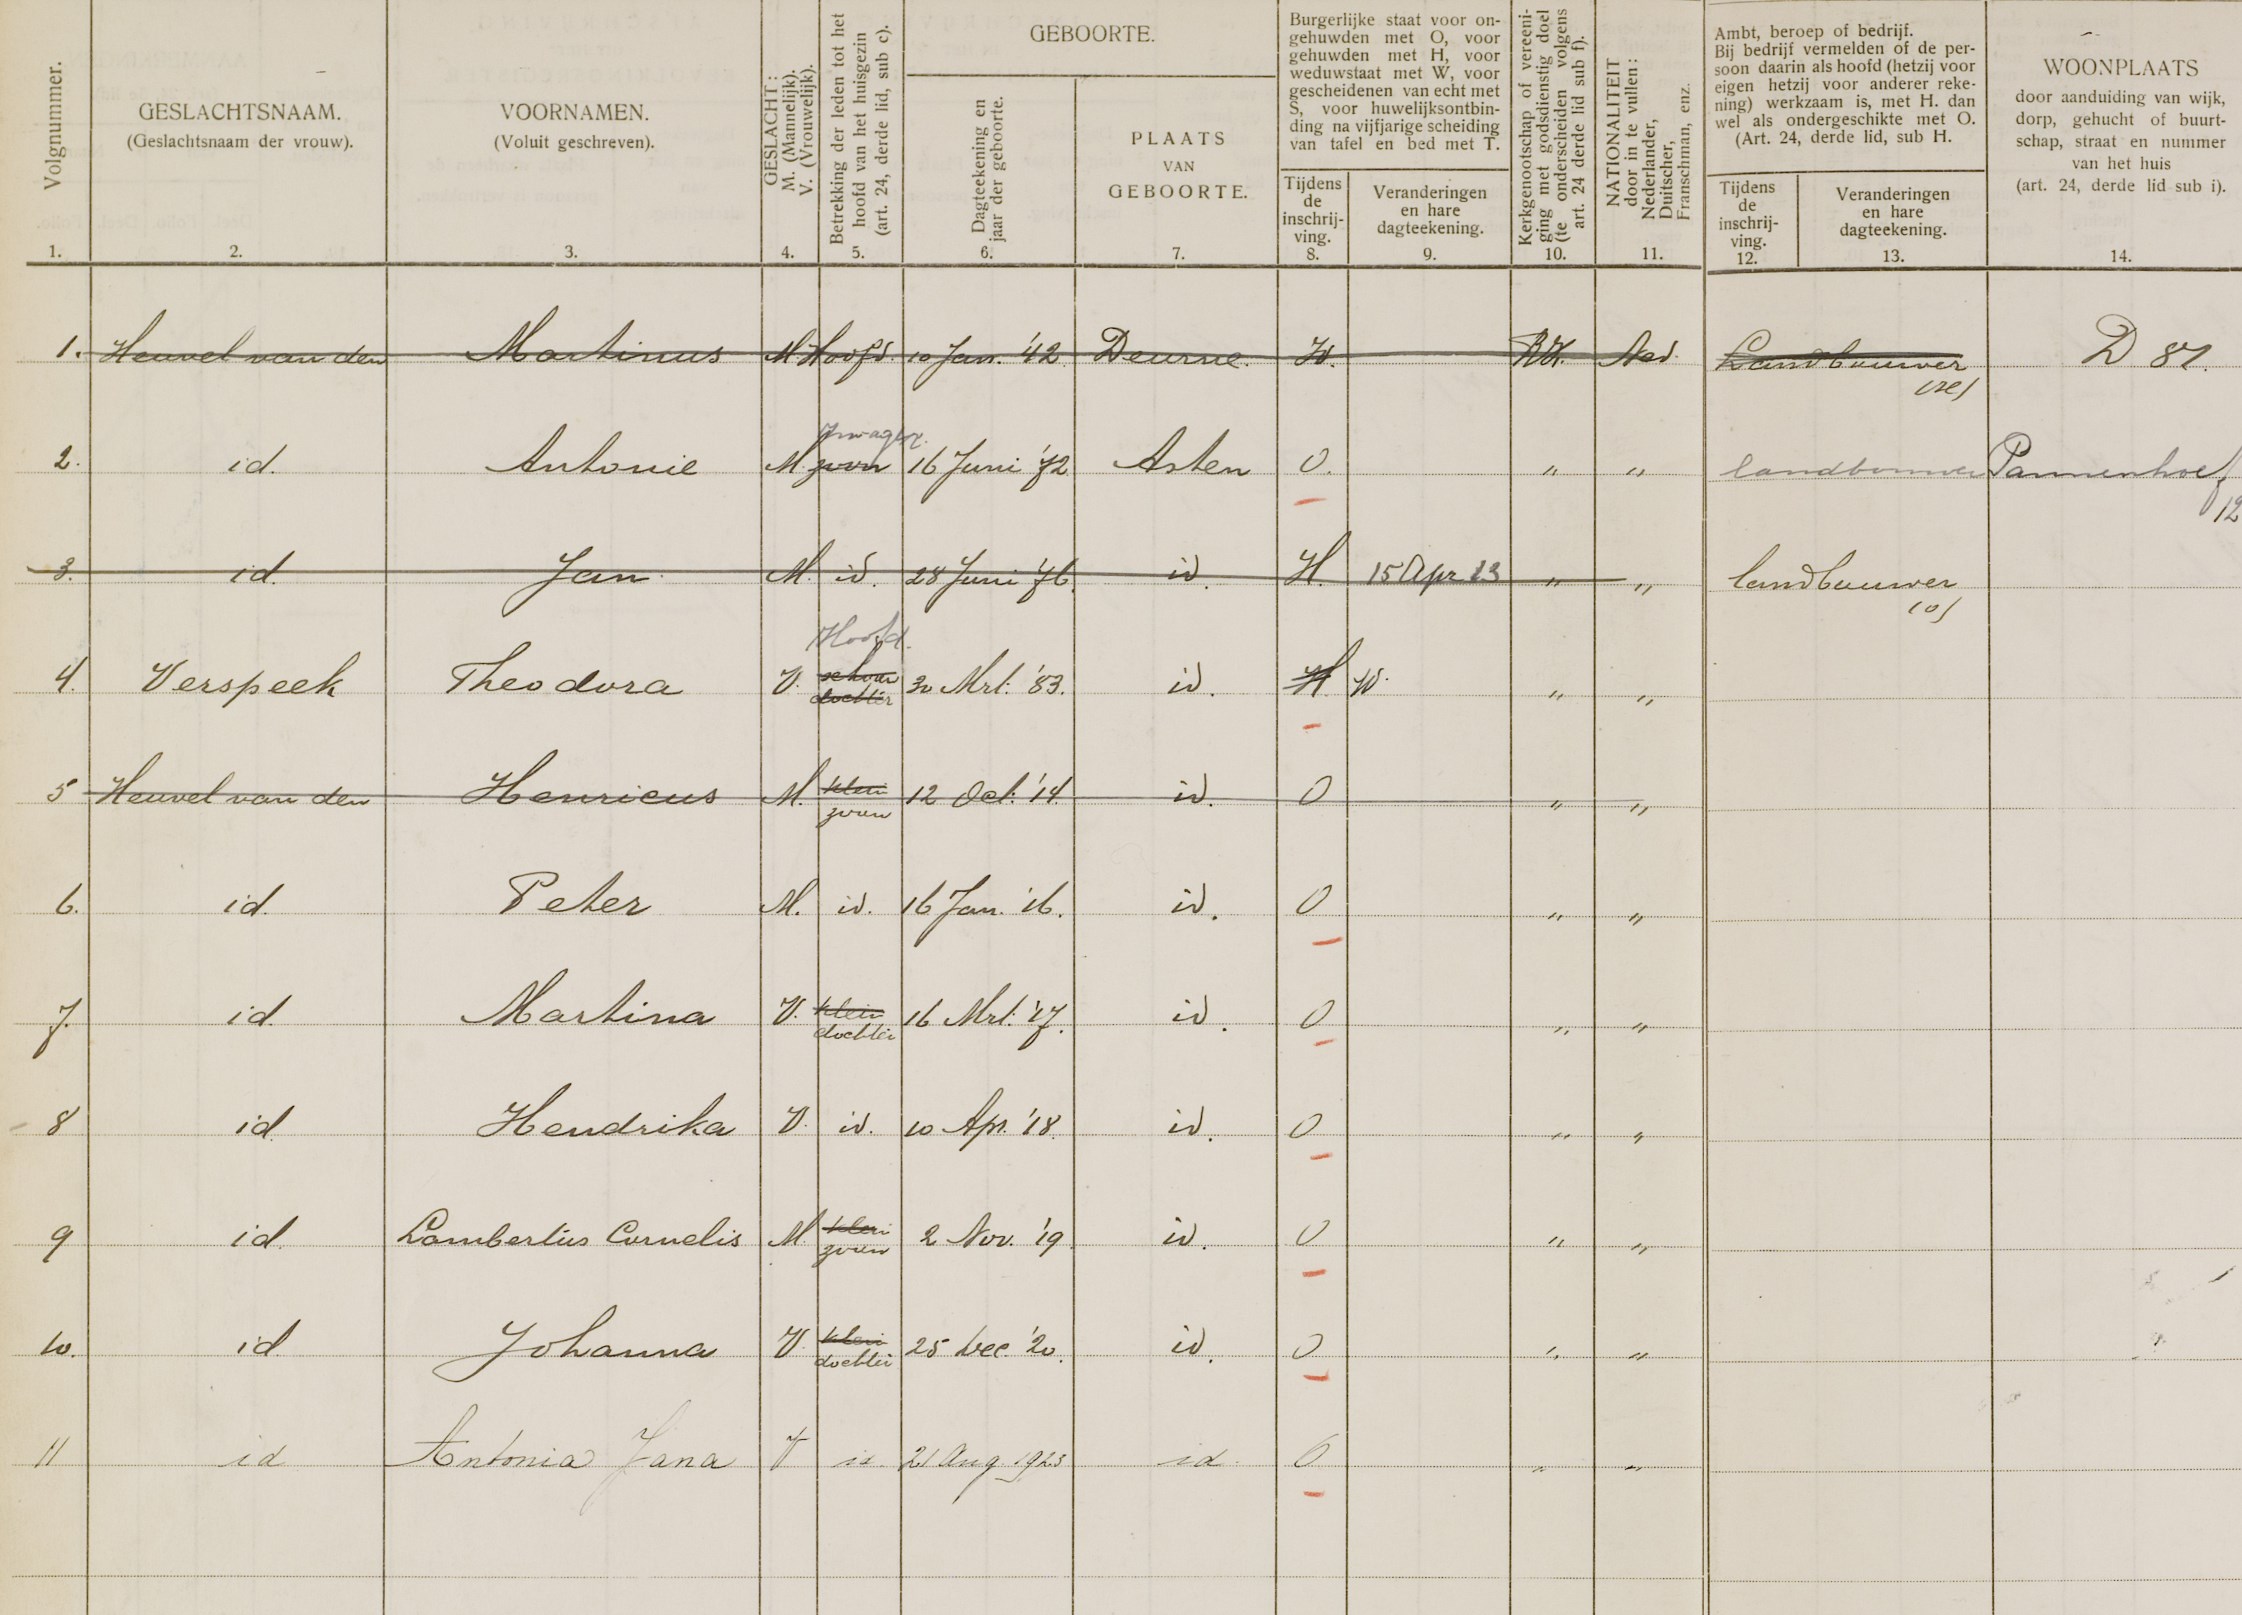 Volgnummer.
1.
GESLACHTSNAAM.
(Geslachtsnaam der vrouw).
2.
VOORNAMEN.
(Voluit geschreven).
3.
GESLACHT:
M. (Mannelijk).
V. (Vrouwelijk).
4.
Betrekking der leden tot het
hoofd van het huisgezin
(art. 24, derde lid, sub c).
5.
GEBOORTE.
Dagteekening en
jaar der geboorte.
6.
PLAATS
VAN
GEBOORTE.
7.
Burgerlijke staat voor on-
gehuwden met O, voor
gehuwden met H, voor
weduwstaat met W, voor
gescheidenen van echt met
S, voor huwelijksontbin-
ding na vijfjarige scheiding
van tafel en bed met T.
Tijdens
de
inschrij-
ving.
8.
Veranderingen
en hare
dagteekening.
9.
Kerkgenootschap of vereeni-
ging met godsdienstig doel
(te onderscheiden volgens
art. 24 derde lid sub f).
10.
NATIONALITEIT
door in te vullen:
Nederlander,
Duitscher,
Franschman, enz.
11.
Ambt, beroep of bedrijf.
Bij bedrijf vermelden of de per-
soon daarin als hoofd (hetzij voor
eigen hetzij voor anderer reke-
ning) werkzaam is, met H. dan
wel als ondergeschikte met O.
(Art. 24, derde lid, sub H.
Tijdens
de
inschrij-
ving.
12.
Veranderingen
en hare
dagteekening.
13.
WOONPLAATS
door aanduiding van wijk,
dorp, gehucht of buurt-
schap, straat en nummer
van het huis
(art. 24, derde lid sub i).
14.
1. Heuvel van den Martinus M. Hoofd. 10 Jan. '42. Deurne. W. R.K. Ned. Landbouwer D 87.
zwager.
2. id. Antonie M. zoon 16 Juni '72 Asten O. " " landbouwer Pannenhoef
12
3. id. Jan M. id. 28 Juni '76. id. H. 15 Apr 23 " " landbouwer
(o)
Hoofd.
4. Verspeek Theodora V. schoon 30 Mrt. '83. id. H. W. " "
dochter
5 Heuvel van den Henricus M. klein 12 Oct. '14. id. O " "
zoon
6. id. Peter M. id. 16 Jan. '16. id. O " "
7. id. Martina V. klein 16 Mrt. '17. id. O " "
dochter
8 id. Hendrika V. id. 10 Apr. '18. id. O " "
9 id. Lambertus Cornelis M. klein 2 Nov. '19 id. O " "
zoon
10. id. Johanna V. klein 25 Dec '20. id. O " "
dochter
11 id Antonia Jana V id. 21 Aug 1923 id. O " "